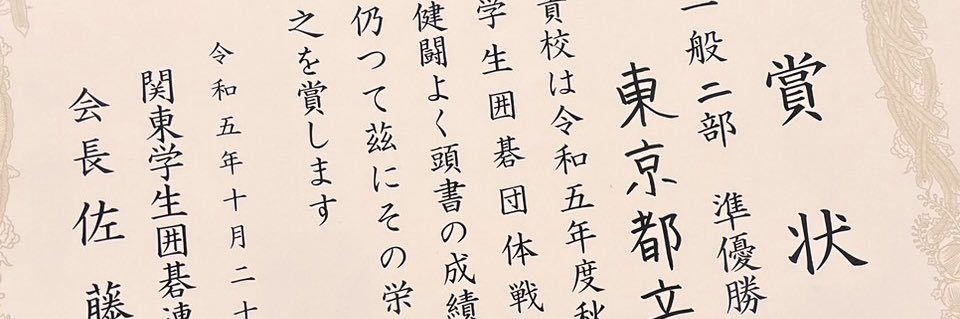 賞状
一般二部 準優勝
東京都立
貴校は令和五年度秋
学生囲碁団体戦
健闘よく頭書の成績
仍つて茲にその栄
之を賞します
令和五年十月二十
関東学生囲碁連
会長 佐藤